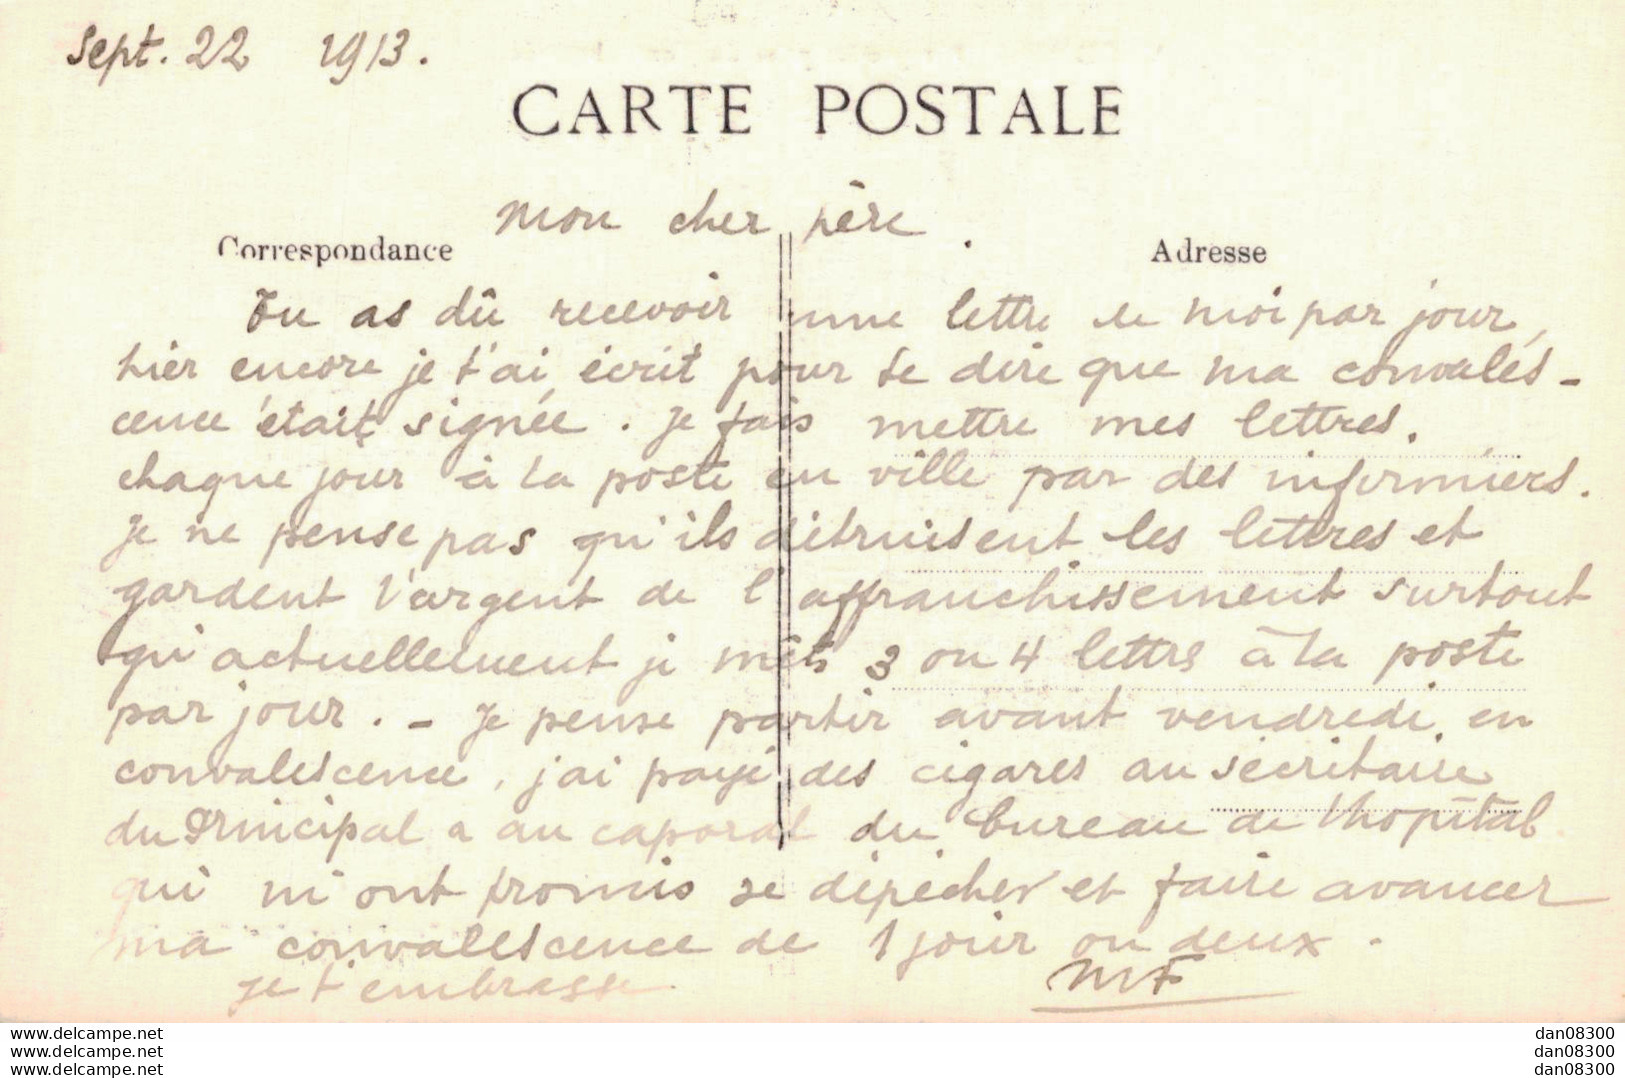 Sept. 22 1913.
CARTE POSTALE
Mon cher père.
Correspondance
Adresse
Tu as dû recevoir une lettre de moi par jour,
hier encore je t'ai écrit pour te dire que ma convales-
cence était signée. Je fais mettre mes lettres.
chaque jour à la poste en ville par des infirmiers.
Je ne pense pas qu'ils détruisent les lettres et
gardent l'argent de l'affranchissement surtout
qu'actuellement je mets 3 ou 4 lettres à la poste
par jour. - Je pense partir avant vendredi en
convalescence, j'ai payé des cigares au secrétaire
du Principal a au caporal du bureau de l'hopital
qui m'ont promis se dépécher et faire avancer
ma convalescence de 1 jour ou deux.
Je t'embrasse.
MF
www.delcampe.net
www.delcampe.net
www.delcampe.net
dan08300
dan08300
dan08300